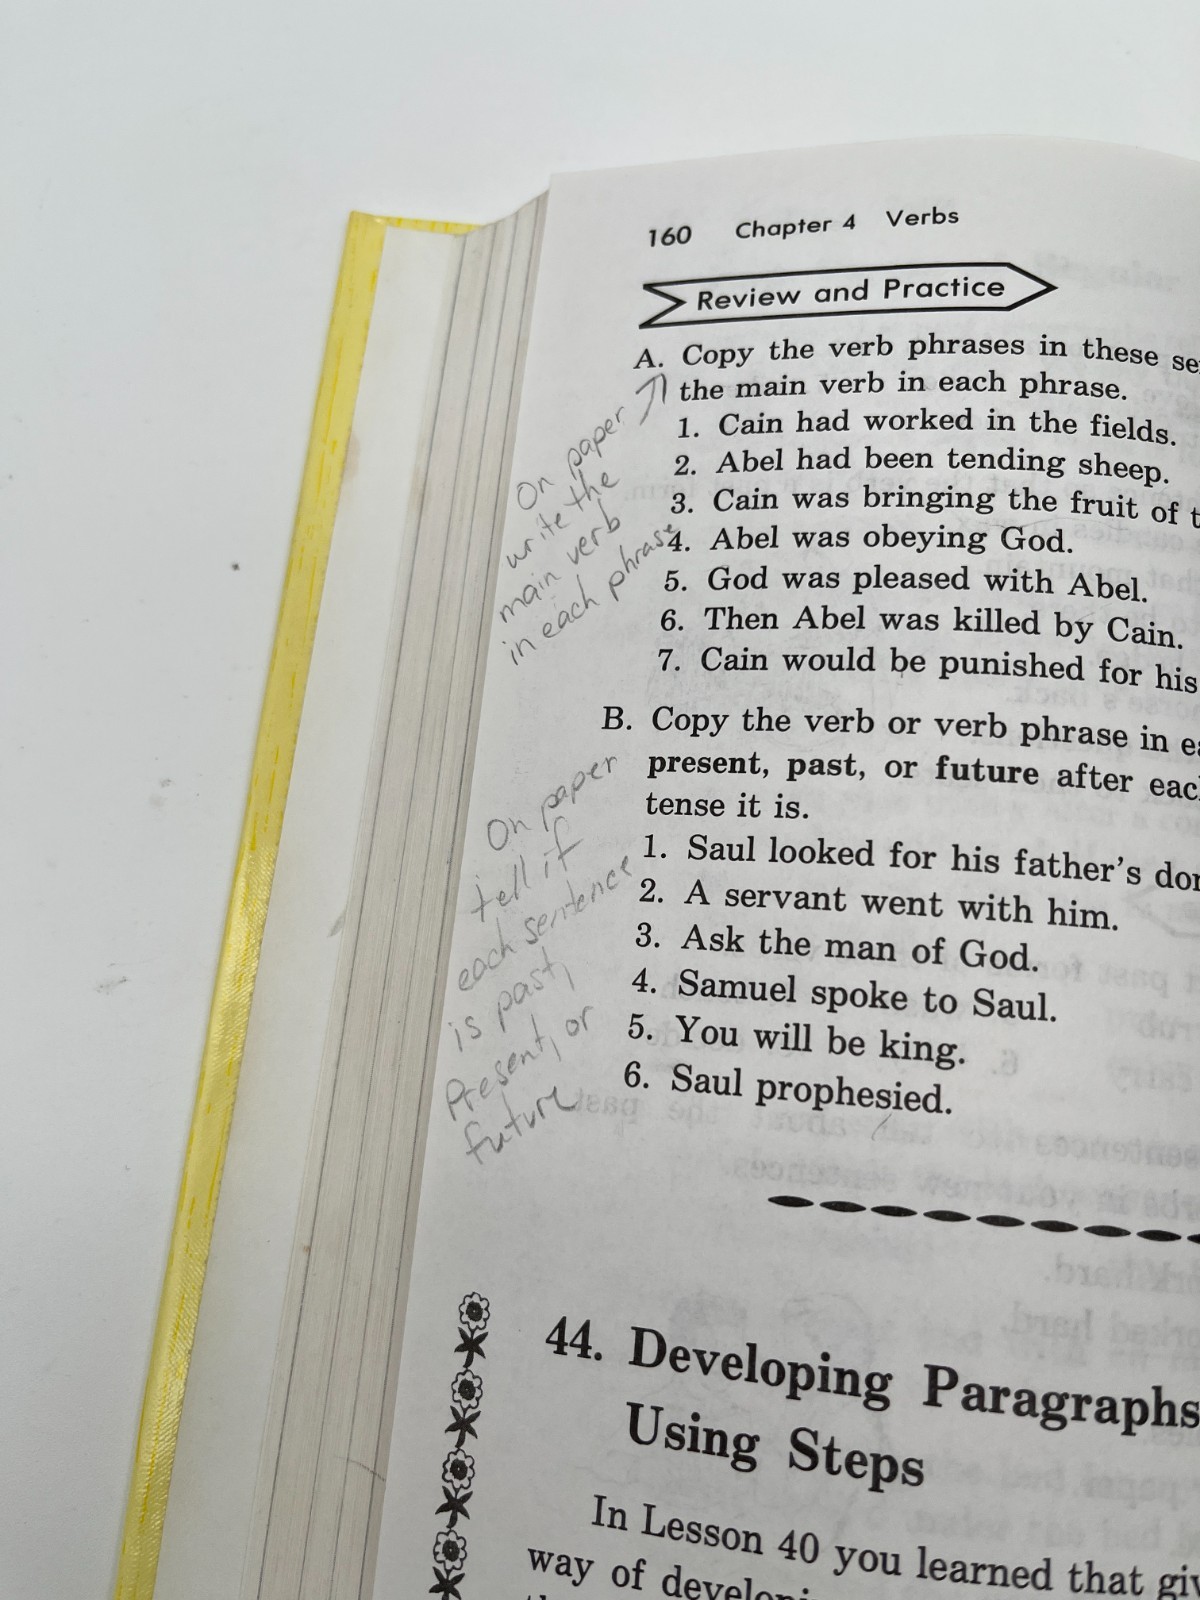 160 Chapter 4 Verbs
Review and Practice
A. Copy the verb phrases in these
the main verb in each phrase.
1. Cain had worked in the fields.
2. Abel had been tending sheep.
3. Cain was bringing the fruit of
4. Abel was obeying God.
5. God was pleased with Abel.
6. Then Abel was killed by Cain.
7. Cain would be punished for his
On paper
write the
main verb
in each phrase
B. Copy the verb or verb phrase in
present, past, or future after
tense it is.
1. Saul looked for his father's
2. A servant went with him.
3. Ask the man of God.
4. Samuel spoke to Saul.
5. You will be king.
6. Saul prophesied.
On paper
tell if
each sentence
is past,
Present, or
future
44. Developing Paragraphs
Using Steps
In Lesson 40 you learned that
way of